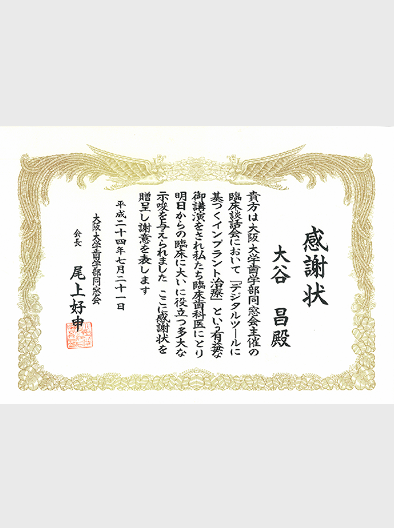 感謝状
大谷 昌殿
貴方は大阪大学歯学部同窓会主催の
臨床談話会において『デジタルツールに
基づくインプラント治療』という有益な
御講演をされ私たち臨床歯科医にとり
明日からの臨床に大いに役立つ多大な
示唆を与えられました ここに感謝状を
贈呈し謝意を表します
平成二十四年七月二十一日
大阪大学歯学部同窓会
会長 尾上好申